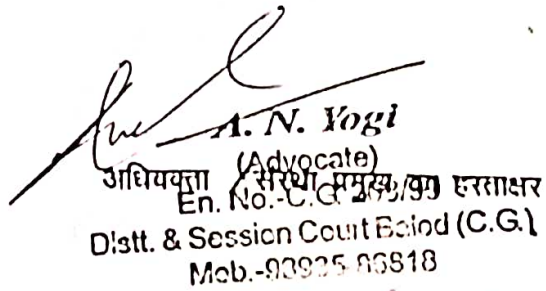 A. N. Yogi
(Advocate)
अधिवक्ता / संस्था प्रमुख का हस्ताक्षर
En. No.-C.G.
Distt. & Session Court Balod (C.G.)
Mob.-93935